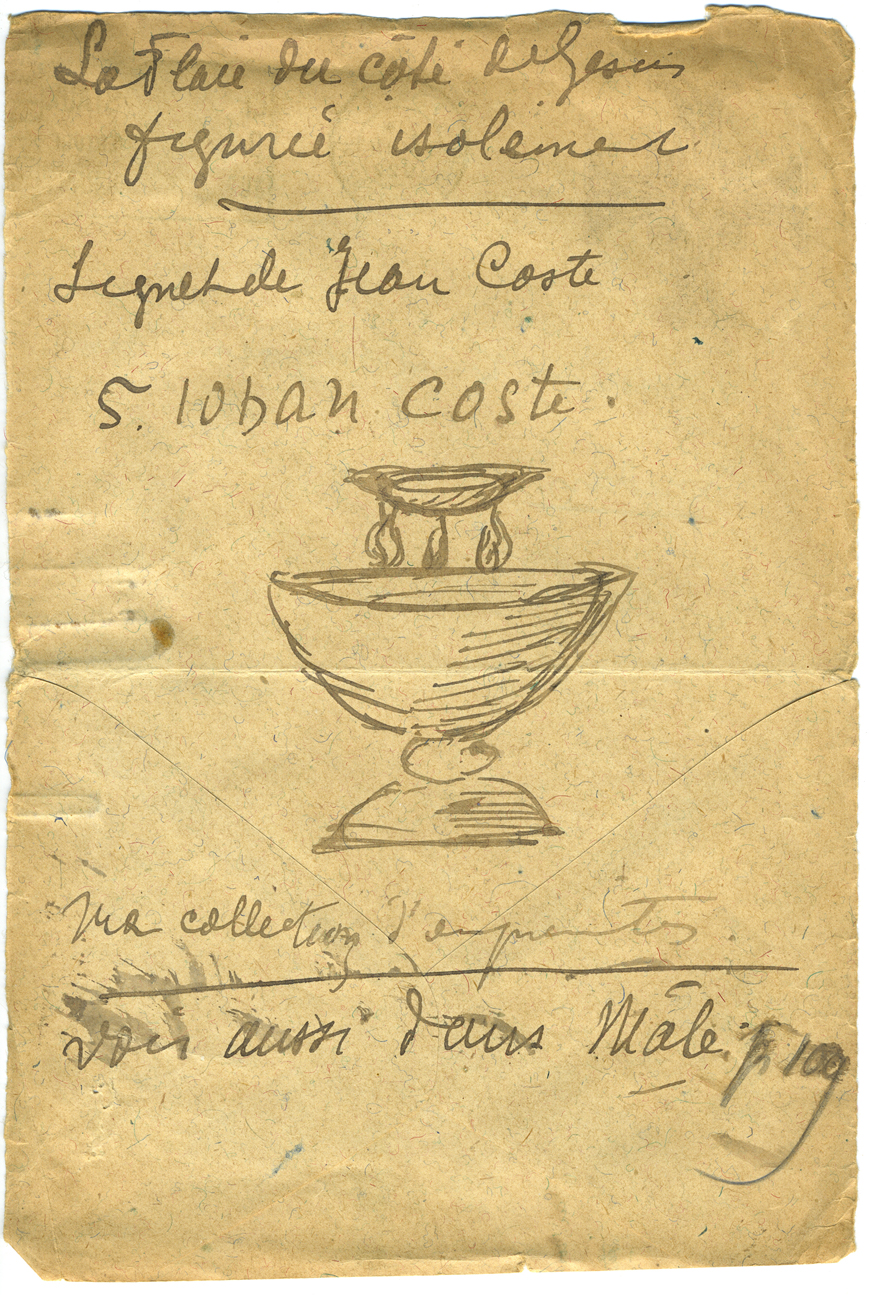 La Plaie du côté de Jesus
figurée isolément
Signet de Jean Coste
S. IOhan Coste.
Ma collection d'empreintes.
Voir aussi dans Mâle. p. 109